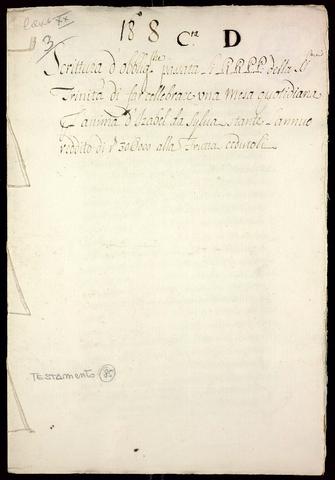 Caixa XX
3
18 8 Cta D
Scrittura d'obblig.ne passata RR PP della SS.
Trinità di far cellebrare vna messa quotidiana
l'anima d'Izabel da Sylua stante annue
reddito di 30
alla
Testamento 85